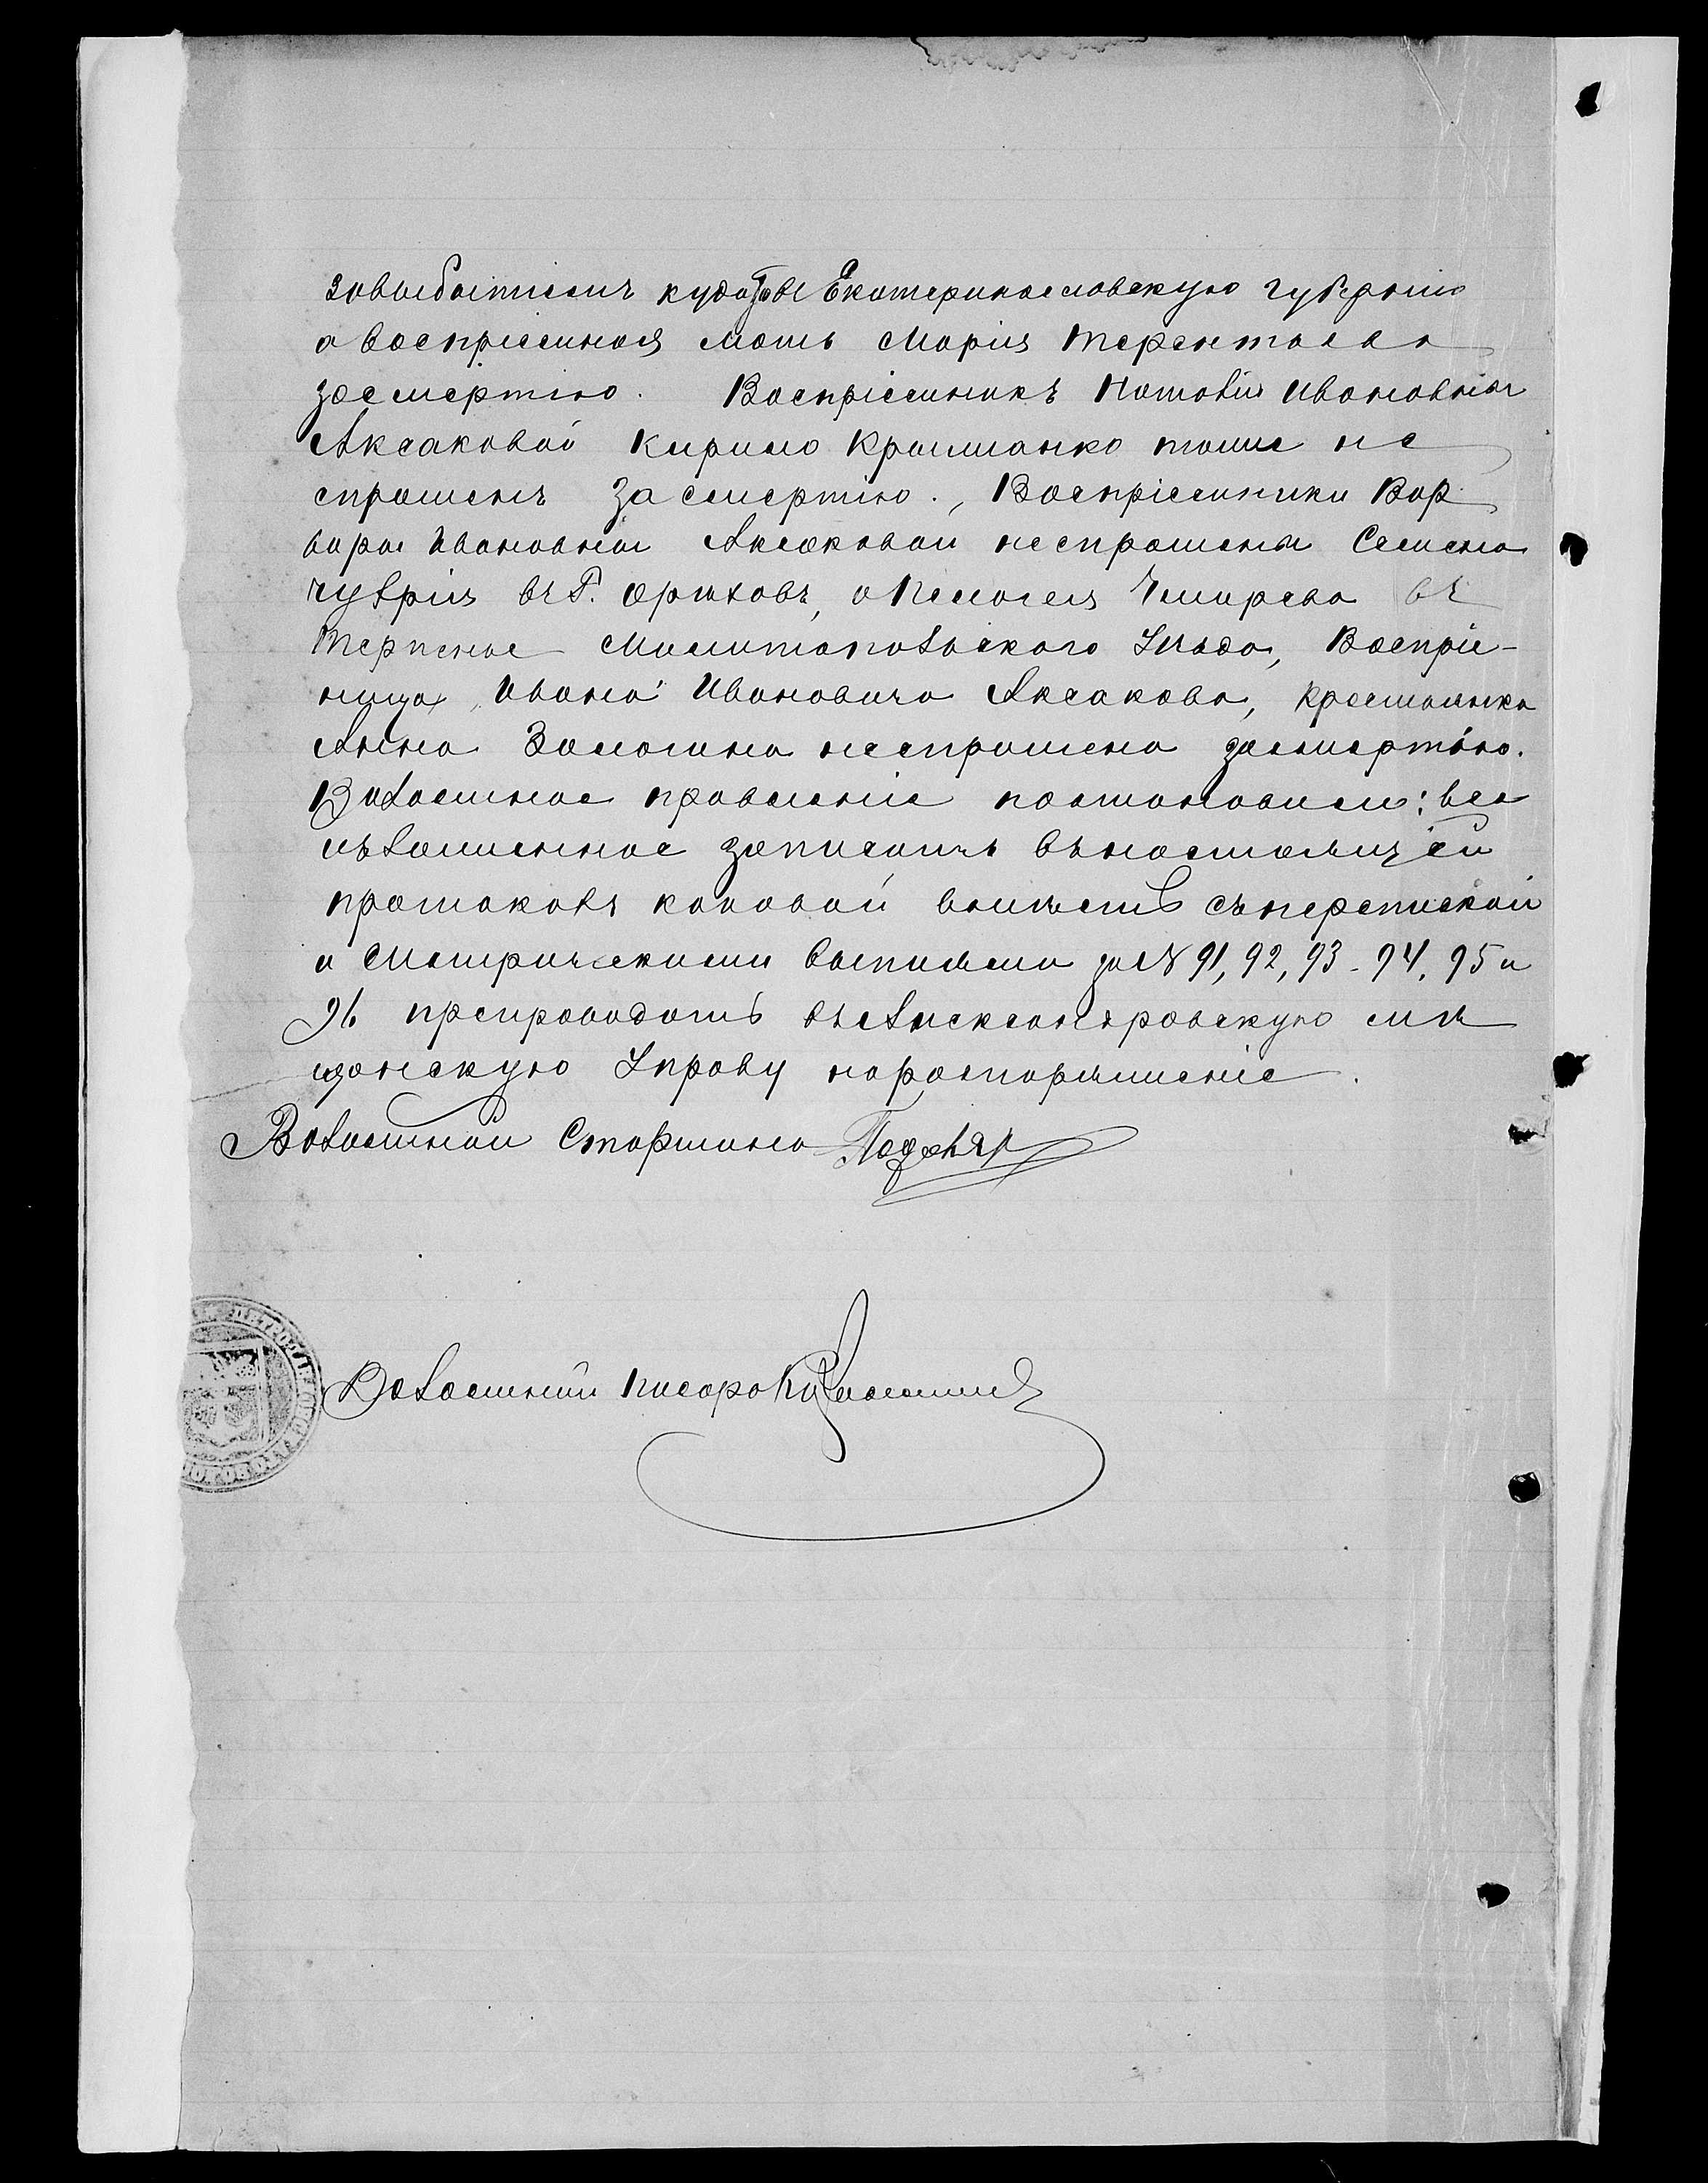 завыбытіемъ куда то въ Екатеринославскую губернію
а воспріемная мать Марія Терентьева
засмертію. Воспріемникъ Наталіи Ивановныи
Аксаковой Кирило Крошианко тоже не
спрошенъ за смертію., Воспріемники Вар
вары Ивановныи Аксаковой неспрошены Семенъ
Чуврія въ Г. Орѣховъ, а Пелагея Чмирева въ
Терпенье Мелитопольскаго Уѣзда, Воспріе-
ница Ивана Ивановича Аксакова, крестьянка
Анна Залогина неспрошена засмертію.
Волостное правленіе постановили: все
изложенное записать въ настоящей
протоколъ каковой вмѣстѣ съ перепиской
и Метрическими выписями за № 91, 92, 93 - 94, 95 и
96 препроводить въ Александровскую мѣ
щанскую Управу нараспоряженіе.
Волостной Старшина
Волостной писарь